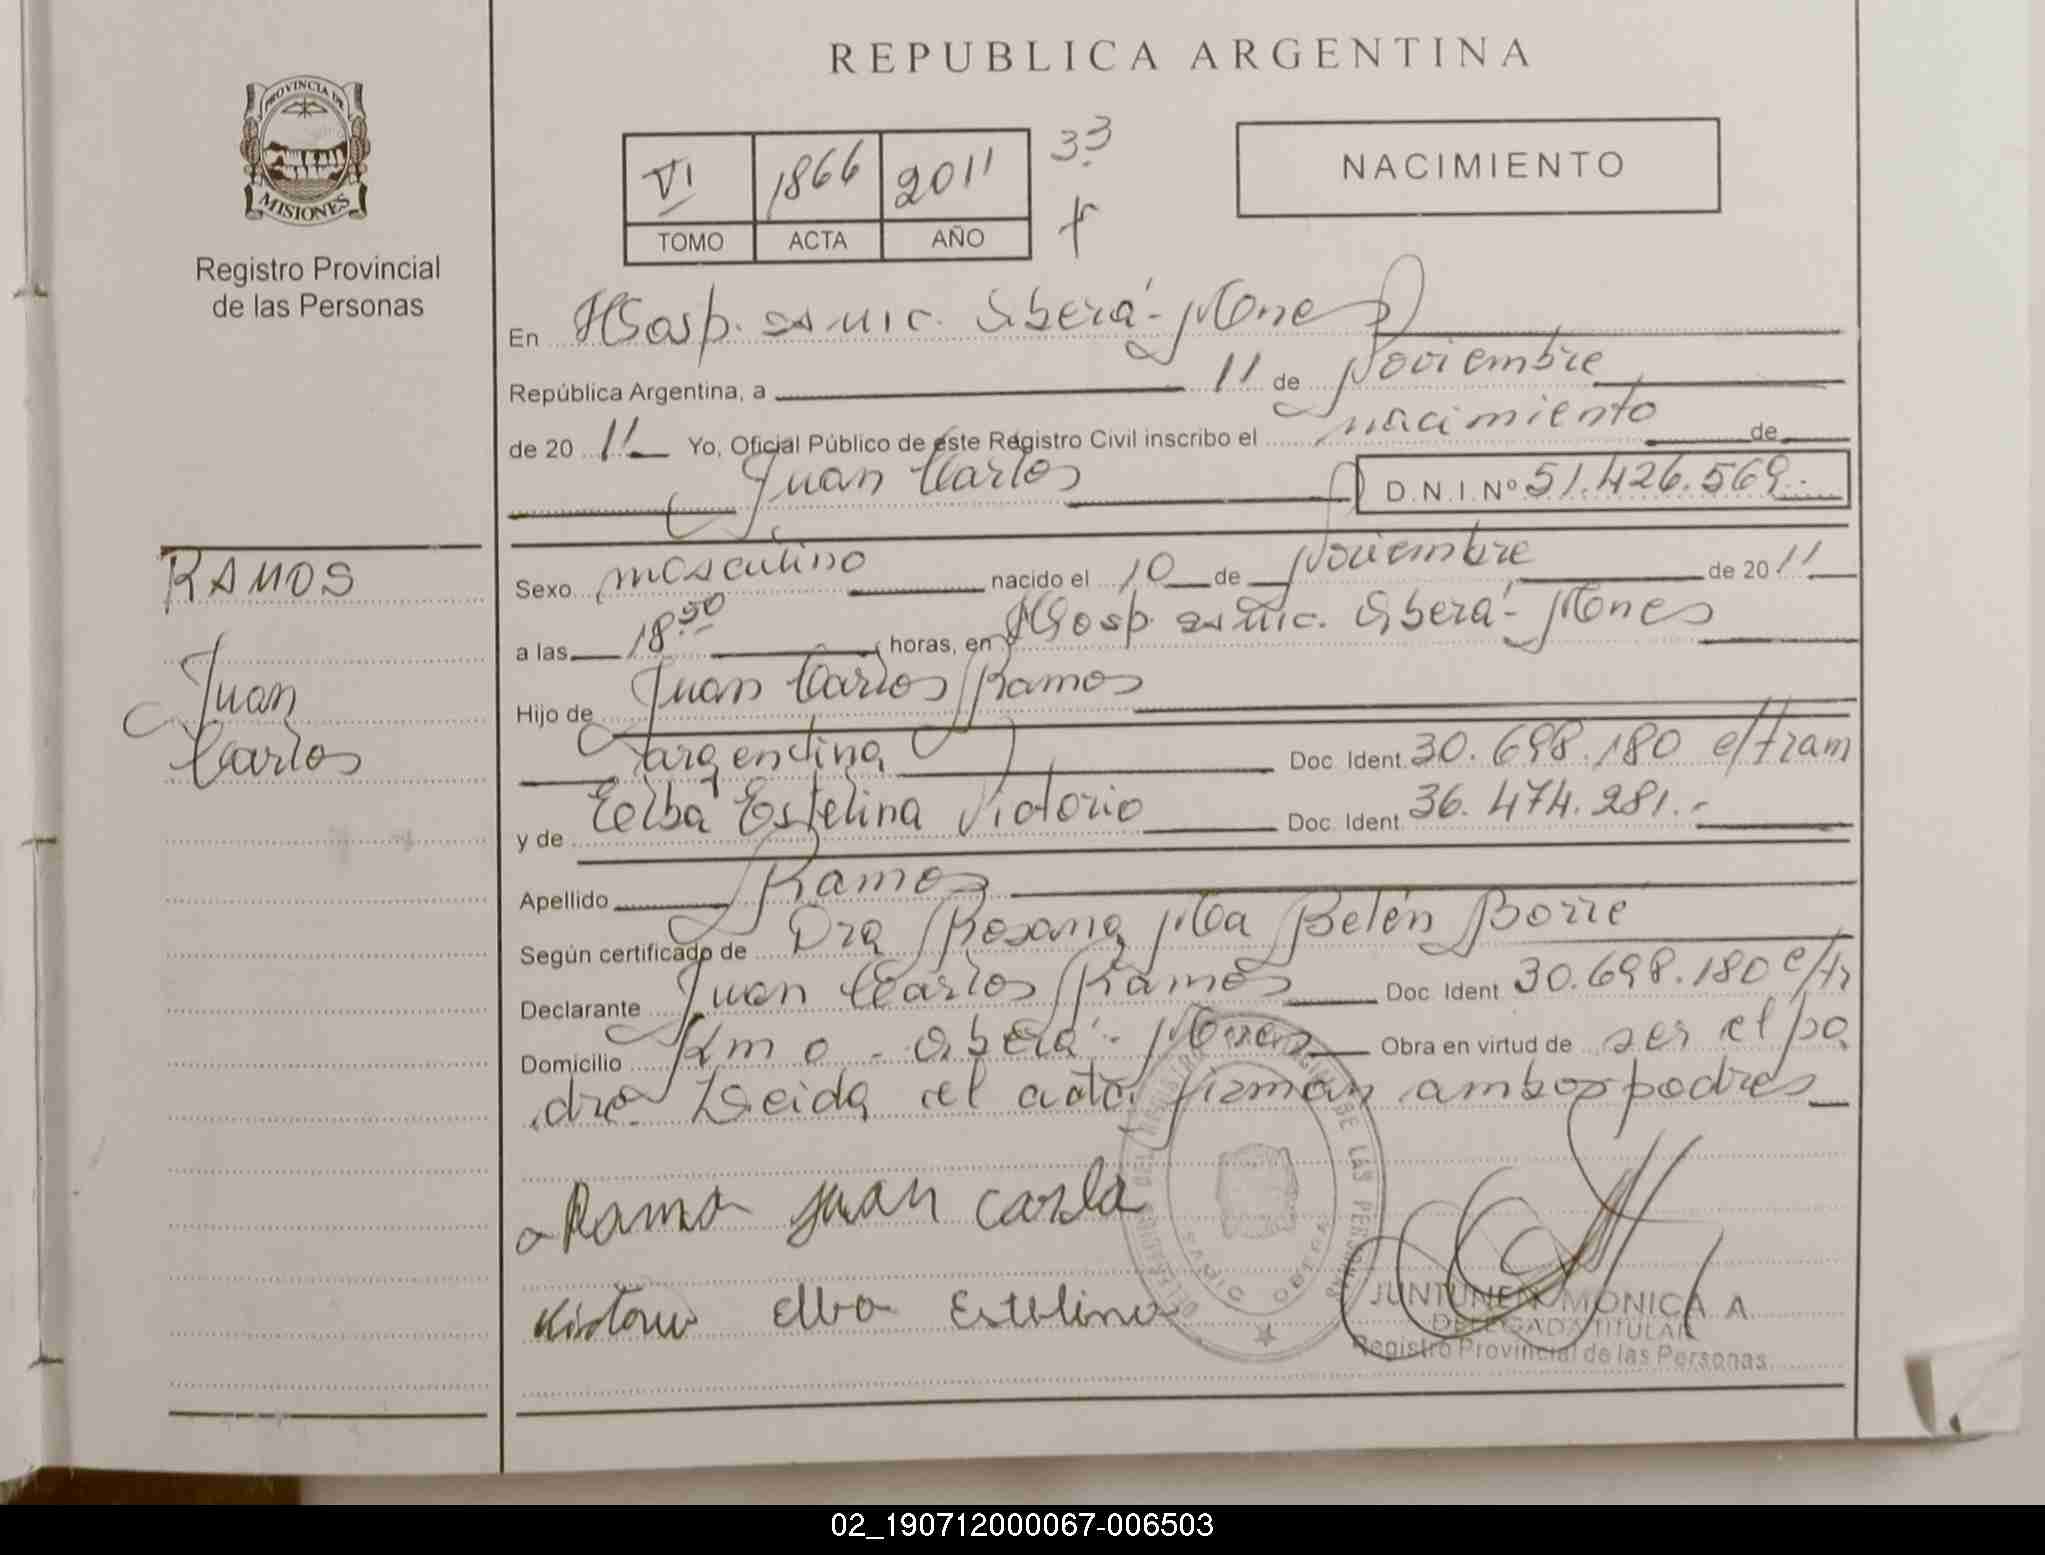 REPUBLICA ARGENTINA
PROVINCIA DE
MISIONES
Registro Provincial
de las Personas
VI 1866 2011 33
TOMO ACTA AÑO
NACIMIENTO
En Hosp. Oberá - Mnes
República Argentina, a 11 de Noviembre
de 20 11 Yo, Oficial Público de este Registro Civil inscribo el nacimiento de
Juan Carlos D.N.I. Nº 51.426.569.-
RAMOS
Juan
Carlos
Sexo masculino nacido el 10 de Noviembre de 20 11
a las 18 50 horas, en Hosp. Oberá - Mnes
Hijo de Juan Carlos Ramos
argentina Doc. Ident. 30.698.180 e/tram
y de Elba Estelina Victorio Doc. Ident. 36.474.281.-
Apellido Ramos
Según certificado de Dra Rosana Ma Belén Borre
Declarante Juan Carlos Ramos Doc. Ident 30.698.180 e/tr
Domicilio Km 0 - Oberá - Mnes Obra en virtud de ser el pa
dre Leida el acta firman ambos padres
Ramos Juan Carlos
Victorio Elba Estelina
DELEGACION DEL REGISTRO PROVINCIAL DE LAS PERSONAS
JUNTUNEN MONICA A.
DELEGADA TITULAR
Registro Provincial de las Personas
02_190712000067-006503